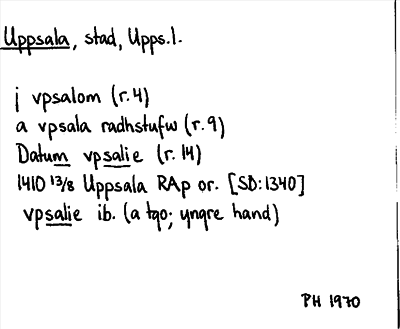 Uppsala, stad, Upps.l.
j vpsalom (r. 4)
a vpsala radhstufw (r. 9)
Datum vpsalie (r. 14)
1410 13/8 Uppsala RAp or. [SD: 1340]
vpsalie ib. (a tgo; yngre hand)
PH 1970